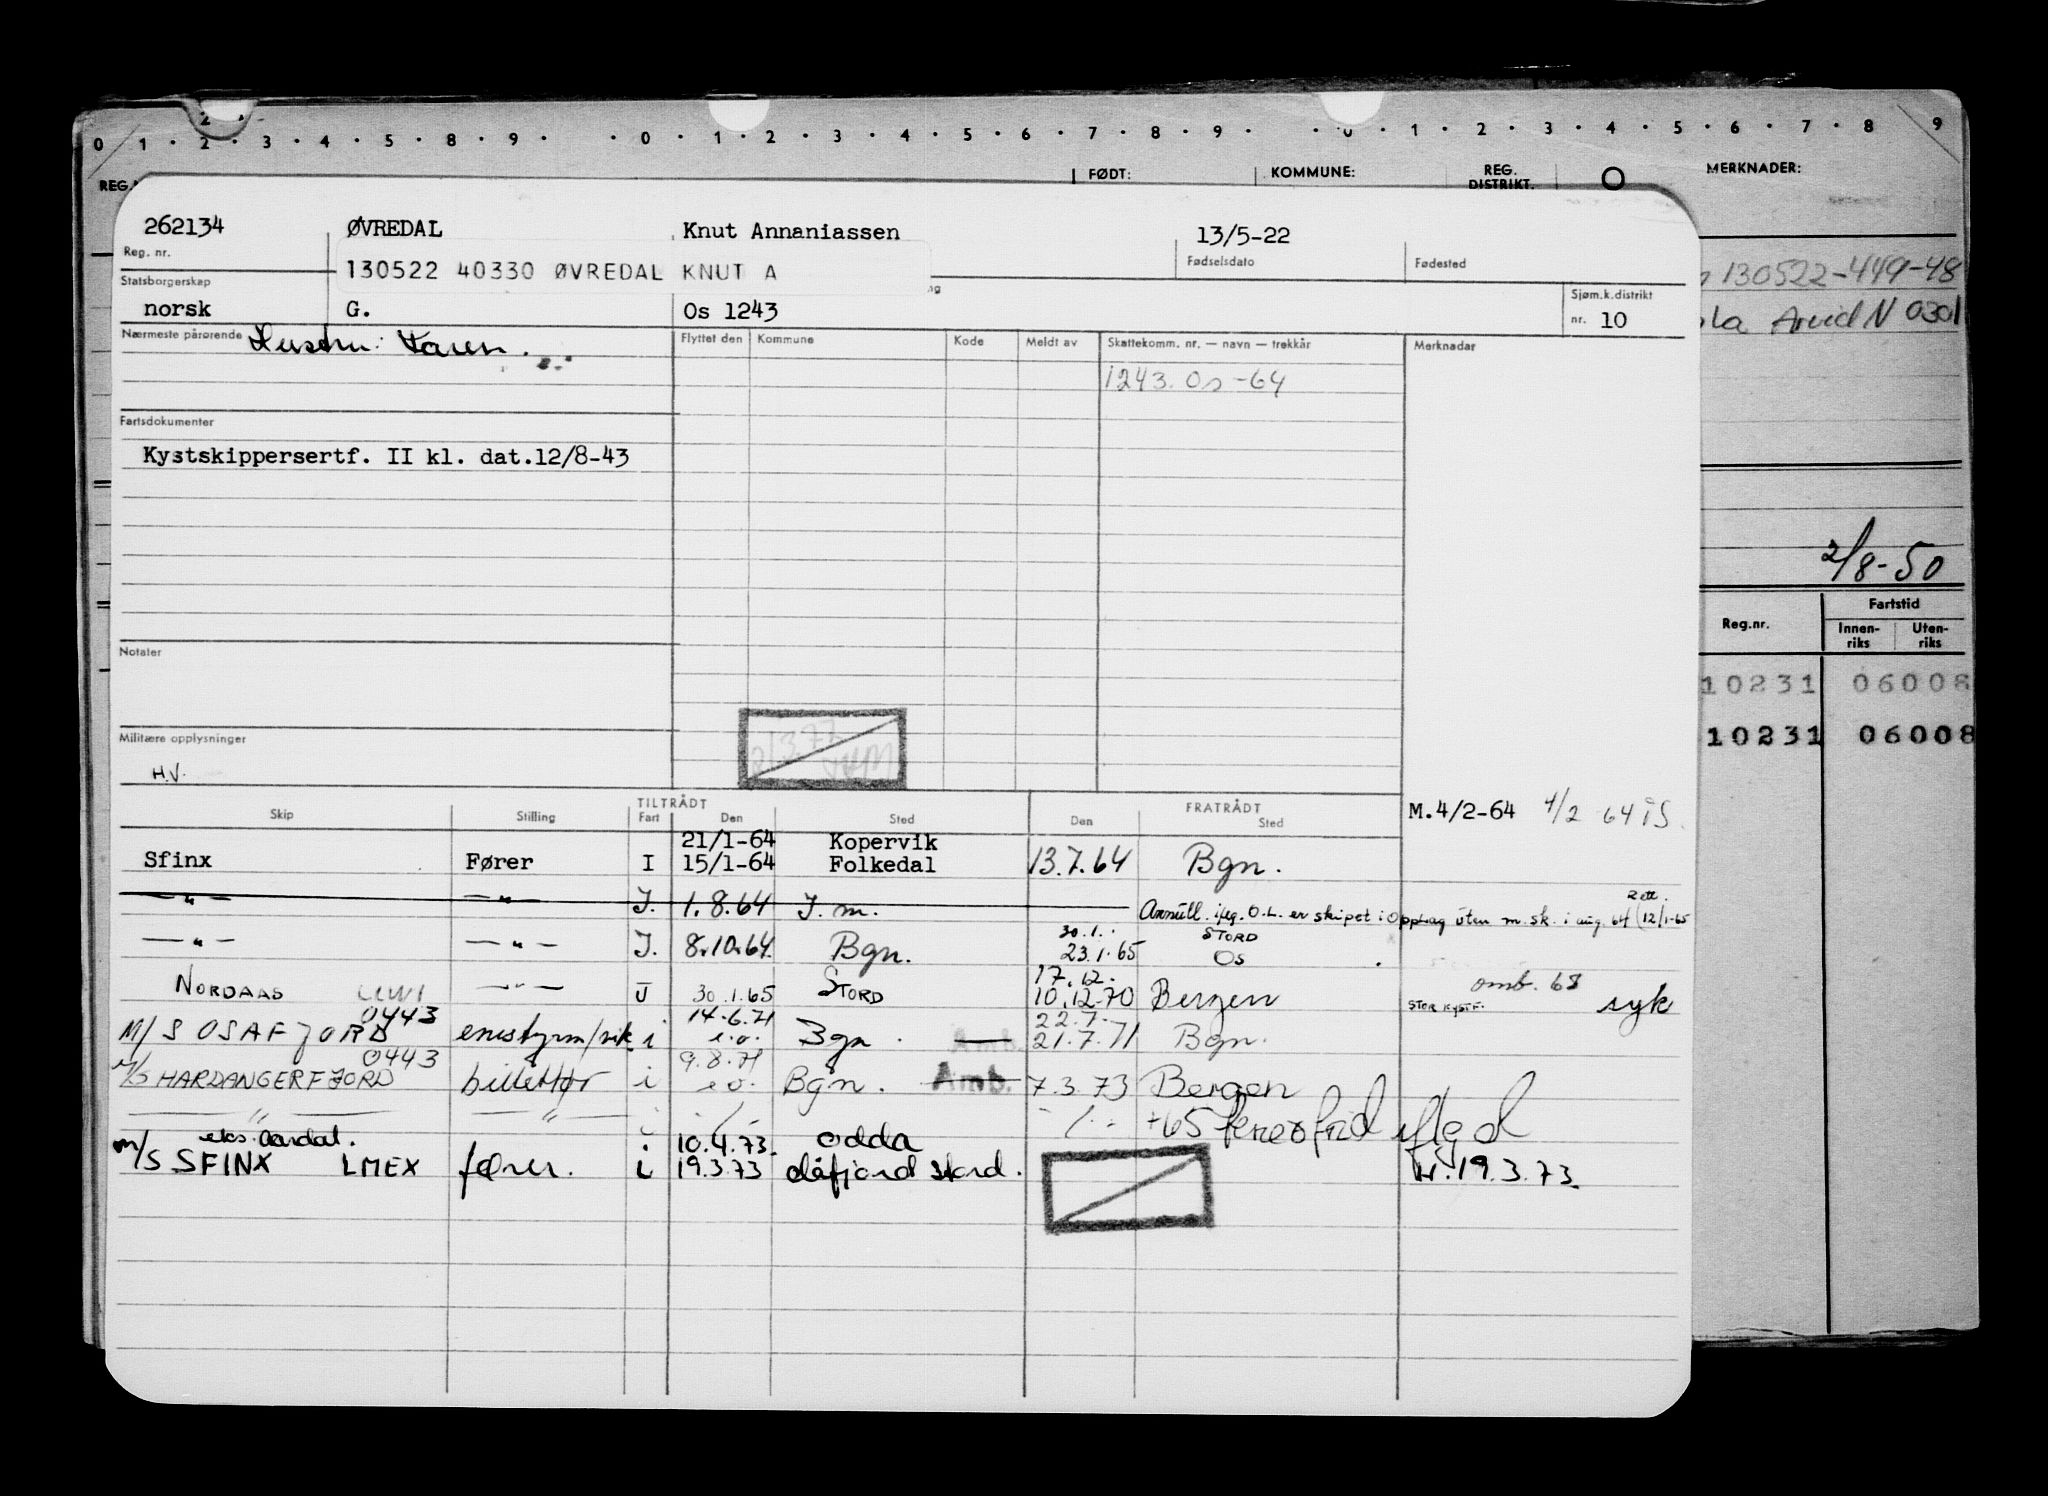 0 1 · 2 · 3 · 4 · 5 · 8 · 9 · · 0 · 1 · 2 · 3 · 4 · 5 · 6 · 7 · 8 · 9 · · 0 · 1 · 2 · 3 · 4 · 5 · 6 · 7 · 8 9
REG. FØDT: KOMMUNE: REG. DISTRIKT. MERKNADER:
262134 ØVREDAL Knut Annaniassen 13/5-22
Reg. nr. Fødselsdato Fødested
130522 40330 ØVREDAL KNUT A
130522-449-48
Statsborgerskap Sjøm.k.distrikt
norsk G. Os 1243 nr. 10
Arvid N 0301
Nærmeste pårørende Hustru: Karen.
Flyttet den Kommune Kode Meldt av Skattekomm. nr. — navn — trekkår Merknader
1243. Os -64
Fartsdokumenter
Kystskippersertf. II kl. dat.12/8-43
2/8-50
Reg.nr. Fartstid
Innen-riks Uten-riks
Notater
10231 06008
Militære opplysninger
10231 06008
H.V.
Skip Stilling TILTRÅDT Fart Den Sted FRATRÅDT Den Sted
M.4/2-64 4/2 64 ÅS.
21/1-64 Kopervik
Sfinx Fører I 15/1-64 Folkedal 13.7.64 Bgn.
— " — — " — I. 1.8.64 I. m. Annull. iflg. O.L. er skipet i opplag uten m.sk. i aug. 64 12/1-65
30.1. STORD
— " — — " — I. 8.10.64 Bgn. 23.1.65 Os
17.12.
NORDAAS — " — I 30.1.65 STORD 10.12.70 Bergen STOR KYSTF. omb. 68 syk
0443 14.6.71 22.7.
M/S OSAFJORD i i.o. Bgn. — 21.7.71 Bgn.
0443 9.8.71
M/S HARDANGERFJORD billettør i i.o. Bgn. Amb. 7.3.73 Bergen
— " — — " —
eks. Aardal. 10.4.73. Odda
M/S SFINX LMEX fører. i 19.3.73 stord. 19.3.73.